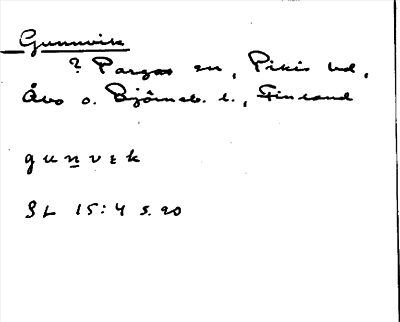 Gunnvik
? Pargas sn, Pikis hd,
Åbo o. Björneb. l., Finland
gunvik
SL 15:4 s. 20